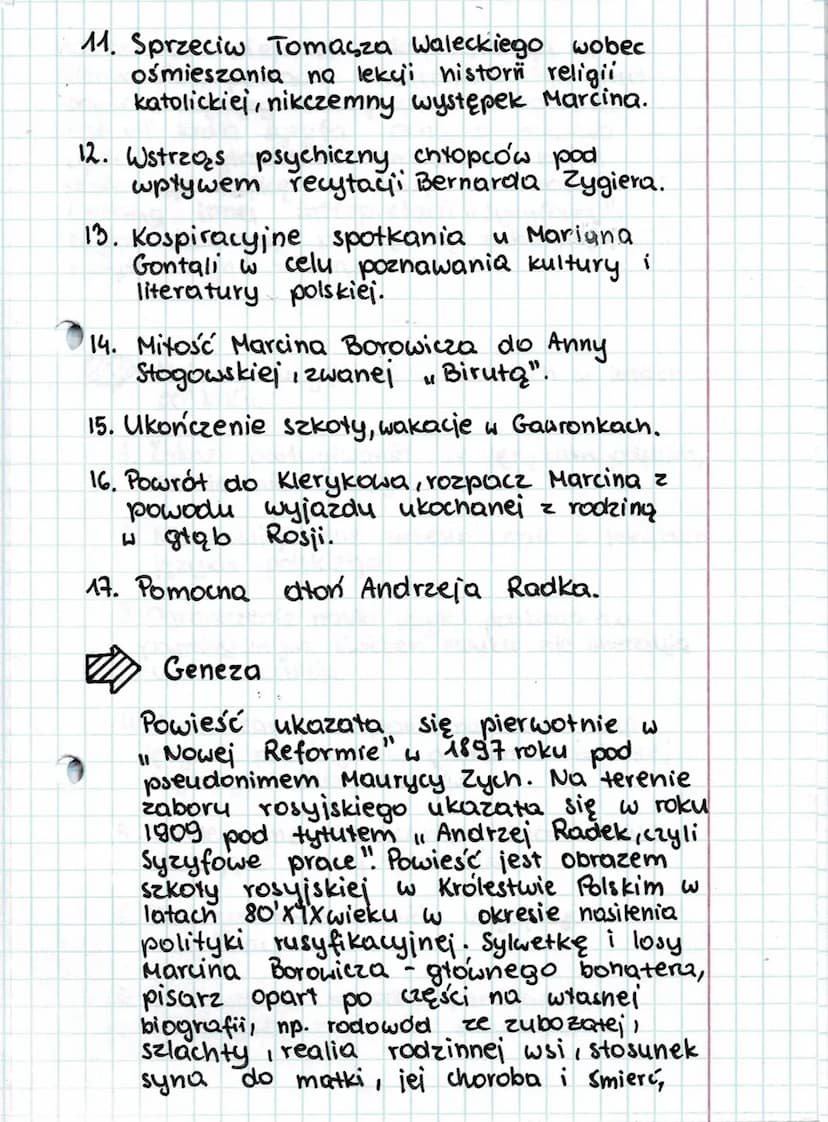 11. Sprzeciw Tomasza Waleckiego wobec
ośmieszania na lekcji historii religii
katolickiej, nikczemny występek Marcina.
12. Wstrząs psychiczny chłopców pod
wpływem recytacji Bernarda Zygiera.
13. Kospiracyjne spotkania u Mariana
Gontali w celu poznawania kultury i
literatury polskiej.
14. Miłość Marcina Borowicza do Anny
Stogowskiej, zwanej „Birutą".
15. Ukończenie szkoły, wakacje w Gawronkach.
16. Powrót do Klerykowa, rozpacz Marcina z
powodu wyjazdu ukochanej z rodziną
w głąb Rosji.
17. Pomocna dłoń Andrzeja Radka.
Geneza
Powieść ukazała się pierwotnie w
„Nowej Reformie" w 1897 roku pod
pseudonimem Maurycy Zych. Na terenie
zaboru rosyjskiego ukazała się w roku
1909 pod tytułem „Andrzej Radek, czyli
Syzyfowe prace". Powieść jest obrazem
szkoły rosyjskiej w Królestwie Polskim w
latach 80' XIX wieku w okresie nasilenia
polityki rusyfikacyjnej. Sylwetkę i losy
Marcina Borowicza - głównego bohatera,
pisarz oparł po części na własnej
biografii, np. rodowód ze zubożałej,
szlachty, realia rodzinnej wsi, stosunek
syna do matki, jej choroba i śmierć,